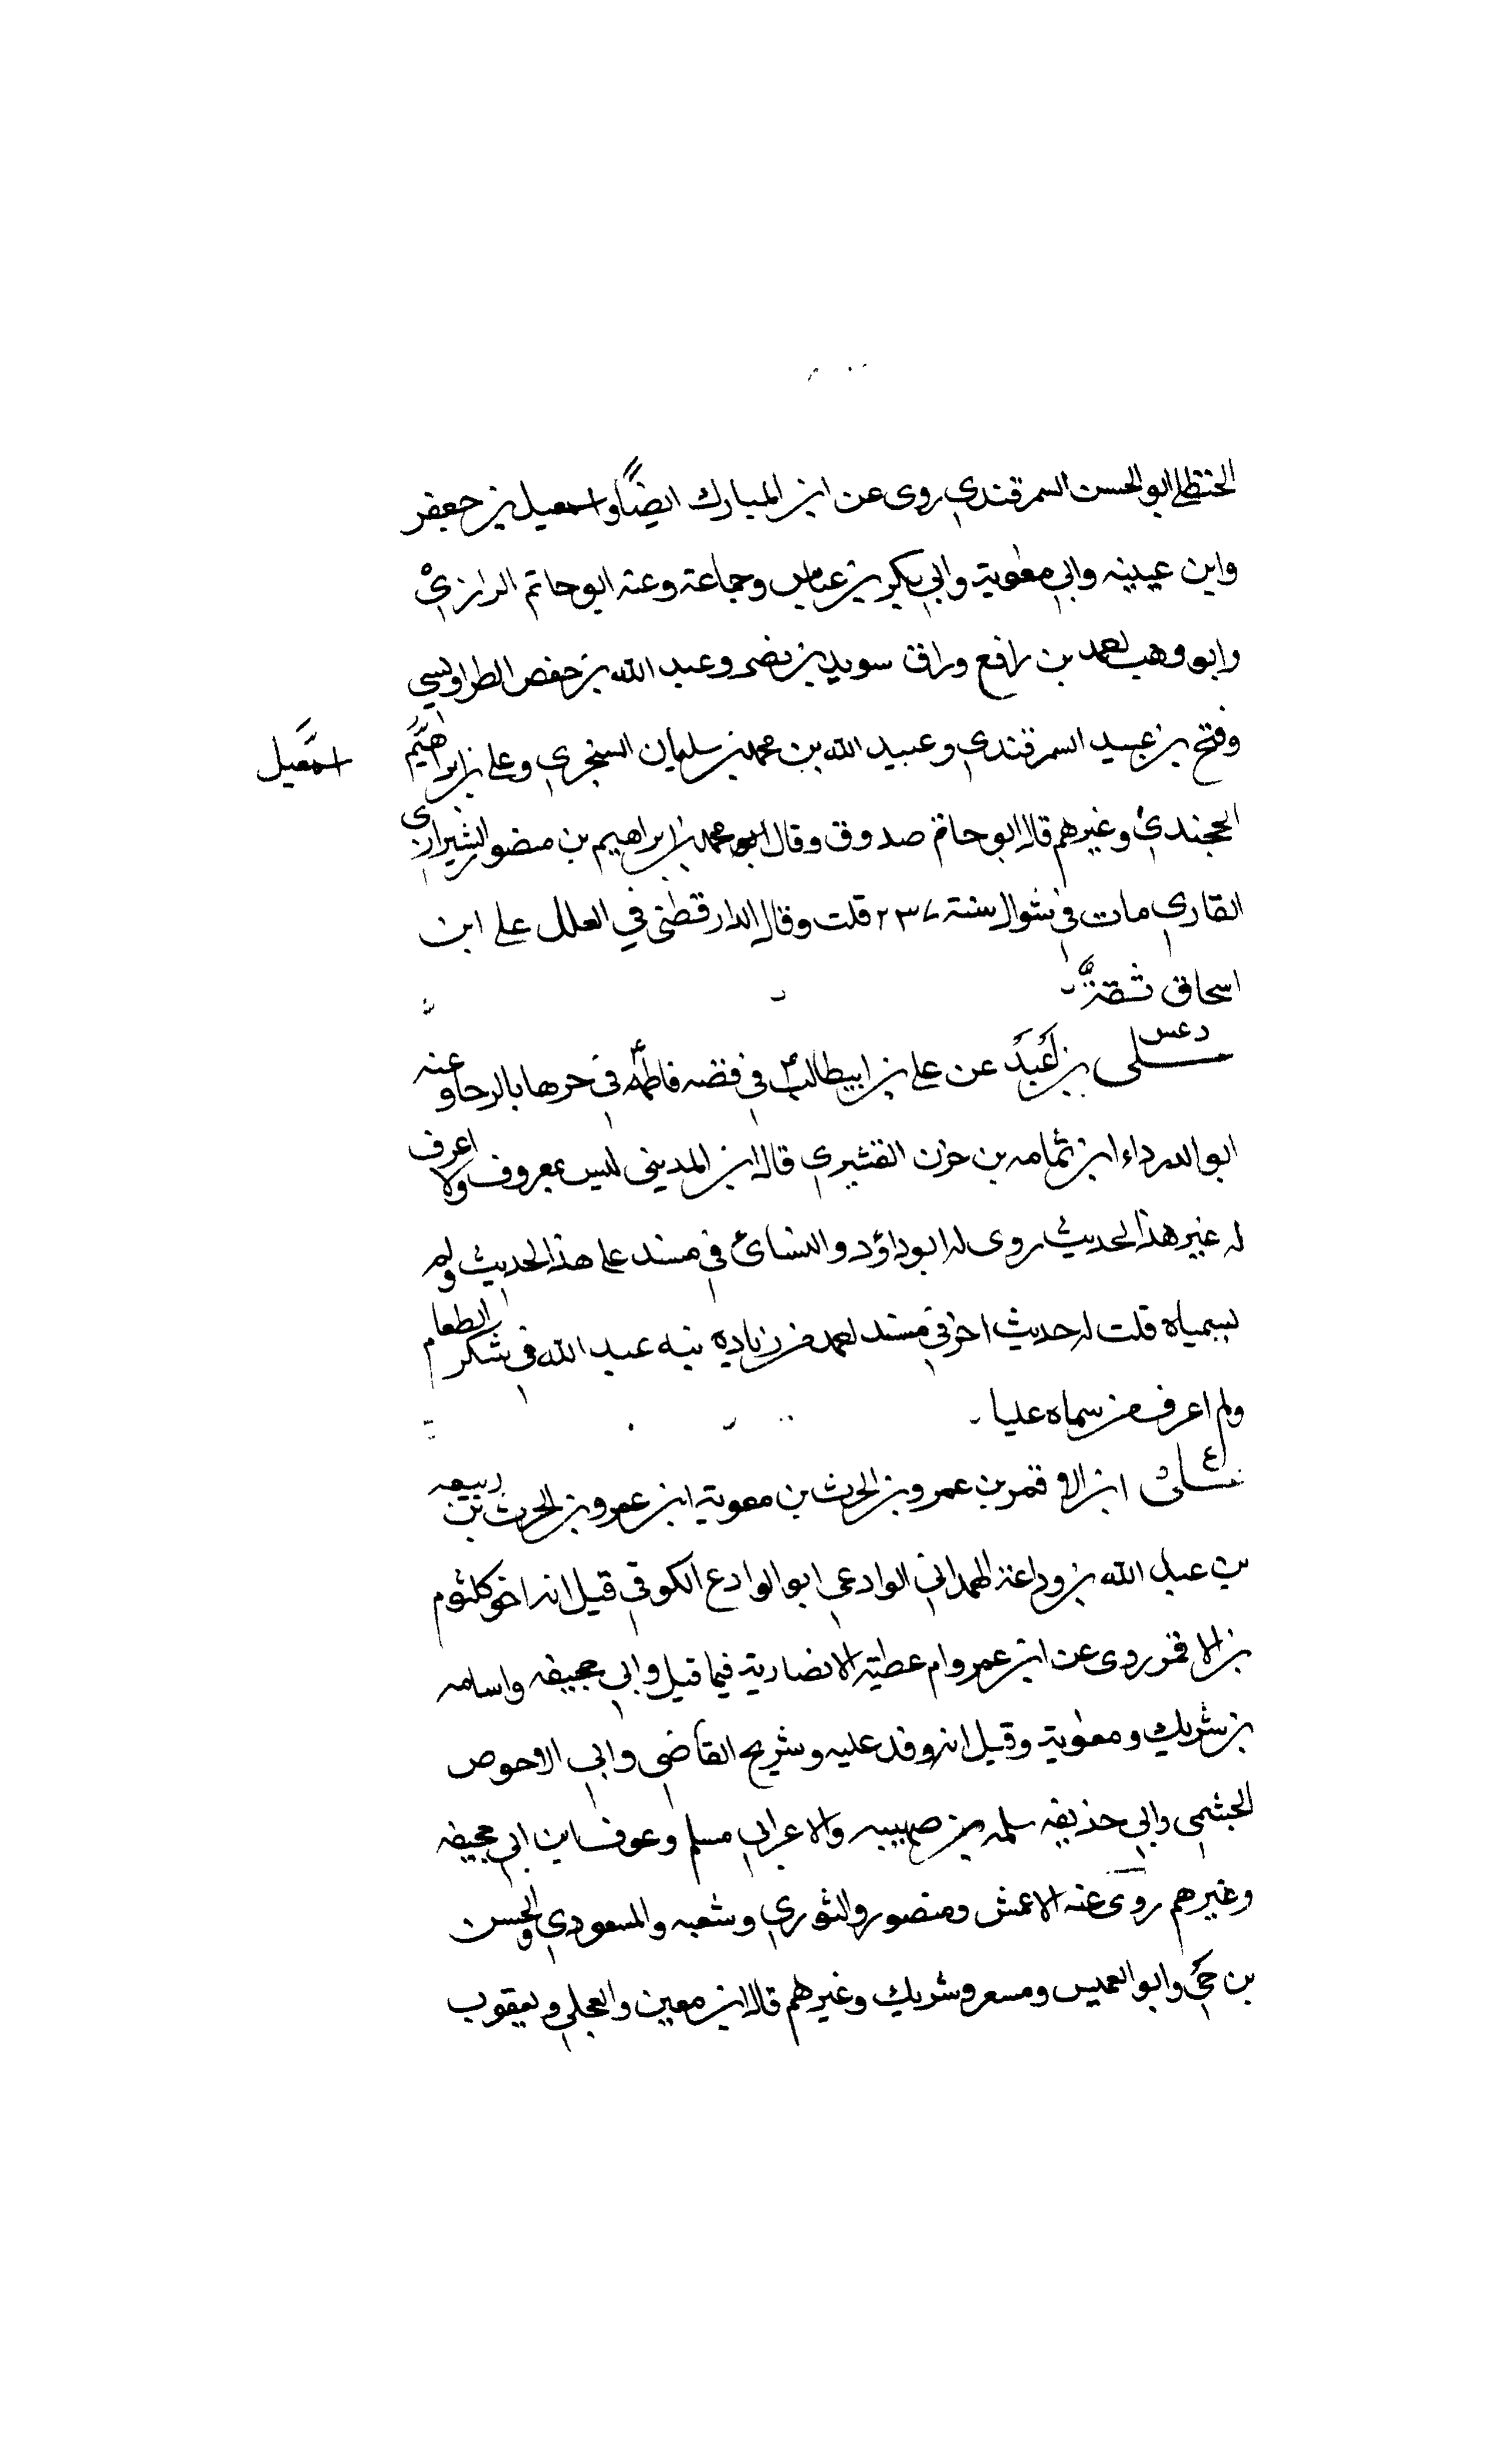 الحنظلي ابو الحسن السمرقندي روى عن ابن المبارك ايضًا واسمعيل بن جعفر
وابن عيينه وابي معٰوية وابي بكر بن عياش وجماعة وعنه ابو حاتم الرازي
وابو وهب احمد بن رافع وراق سويد بن نصر وعبد الله بن حفص الطواويسي
وفتح بن عبيد السمرقندي وعبيد الله بن محمد بن سليمان السنجري وعلي بن ابراهيم
اسمعيل
الخجندي وغيرهم قال ابو حاتم صدوق وقال ابو محمد بن ابراهيم بن منصور الشيرازي
القاري مات في شوال سنة ٢٣٧ قلت وقال الدارقطني في العلل علي ابن
اسحاق ثقة
د عس
علي بن أعبد عن علي بن ابيطالب في قصه فاطمه في جرها بالرحا وعنه
ابو الدرداء ابن ثمامه بن حزن القشيري قال ابن المديني ليس بمعروف ولا اعرف
له غير هذا الحديث روى له ابو داؤد والنسائ في مسند علي هذا الحديث ولم
يسمياه قلت له حديث اخر في مسند احمد من زياده بنه عبد الله في شكر الطعام
ولم اعرف من سماه عليا
ع
علي ابن الاقمر بن عمرو بن الحرث بن معوية ابن عمرو بن الحرث بن ربيعه
بن عبد الله بن وداعة الهمداني الوادعي ابو الوادع الكوفي قيل انه اخو كلثوم
بن الاقمر روى عن ابن عمر وام عطية الانصارية فيما قيل وابي جحيفه واسامه
بن شريك ومعٰوية وقيل انه وفد عليه وشريح القاضي وابي الاحوص
الجشمي وابي حذيفه سلمه بن صهيبه والاغر ابي مسلم وعون ابن ابي جحيفه
وغيرهم روى عنه الاعمش ومنصور والثوري وشعبه والمسعودي والحسن
بن حي وابو العميس ومسعر وشريك وغيرهم قال ابن معين والعجلي ويعقوب